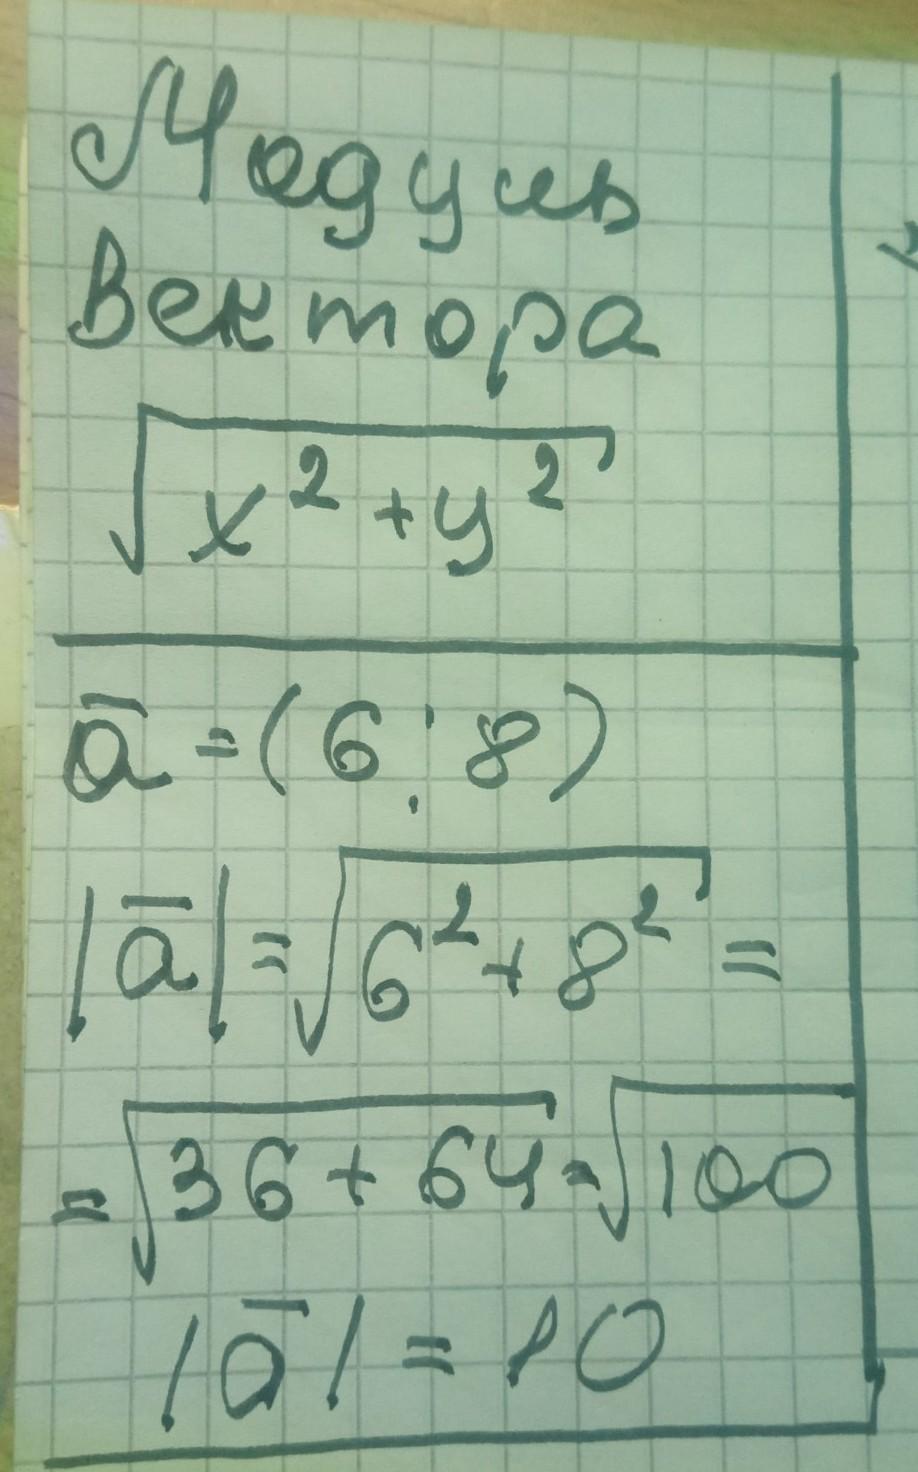 Модуль
Вектора
√(x² + y²)
a̅ = (6; 8)
|a̅| = √(6² + 8²) =
= √(36 + 64) = √100
|a̅| = 10